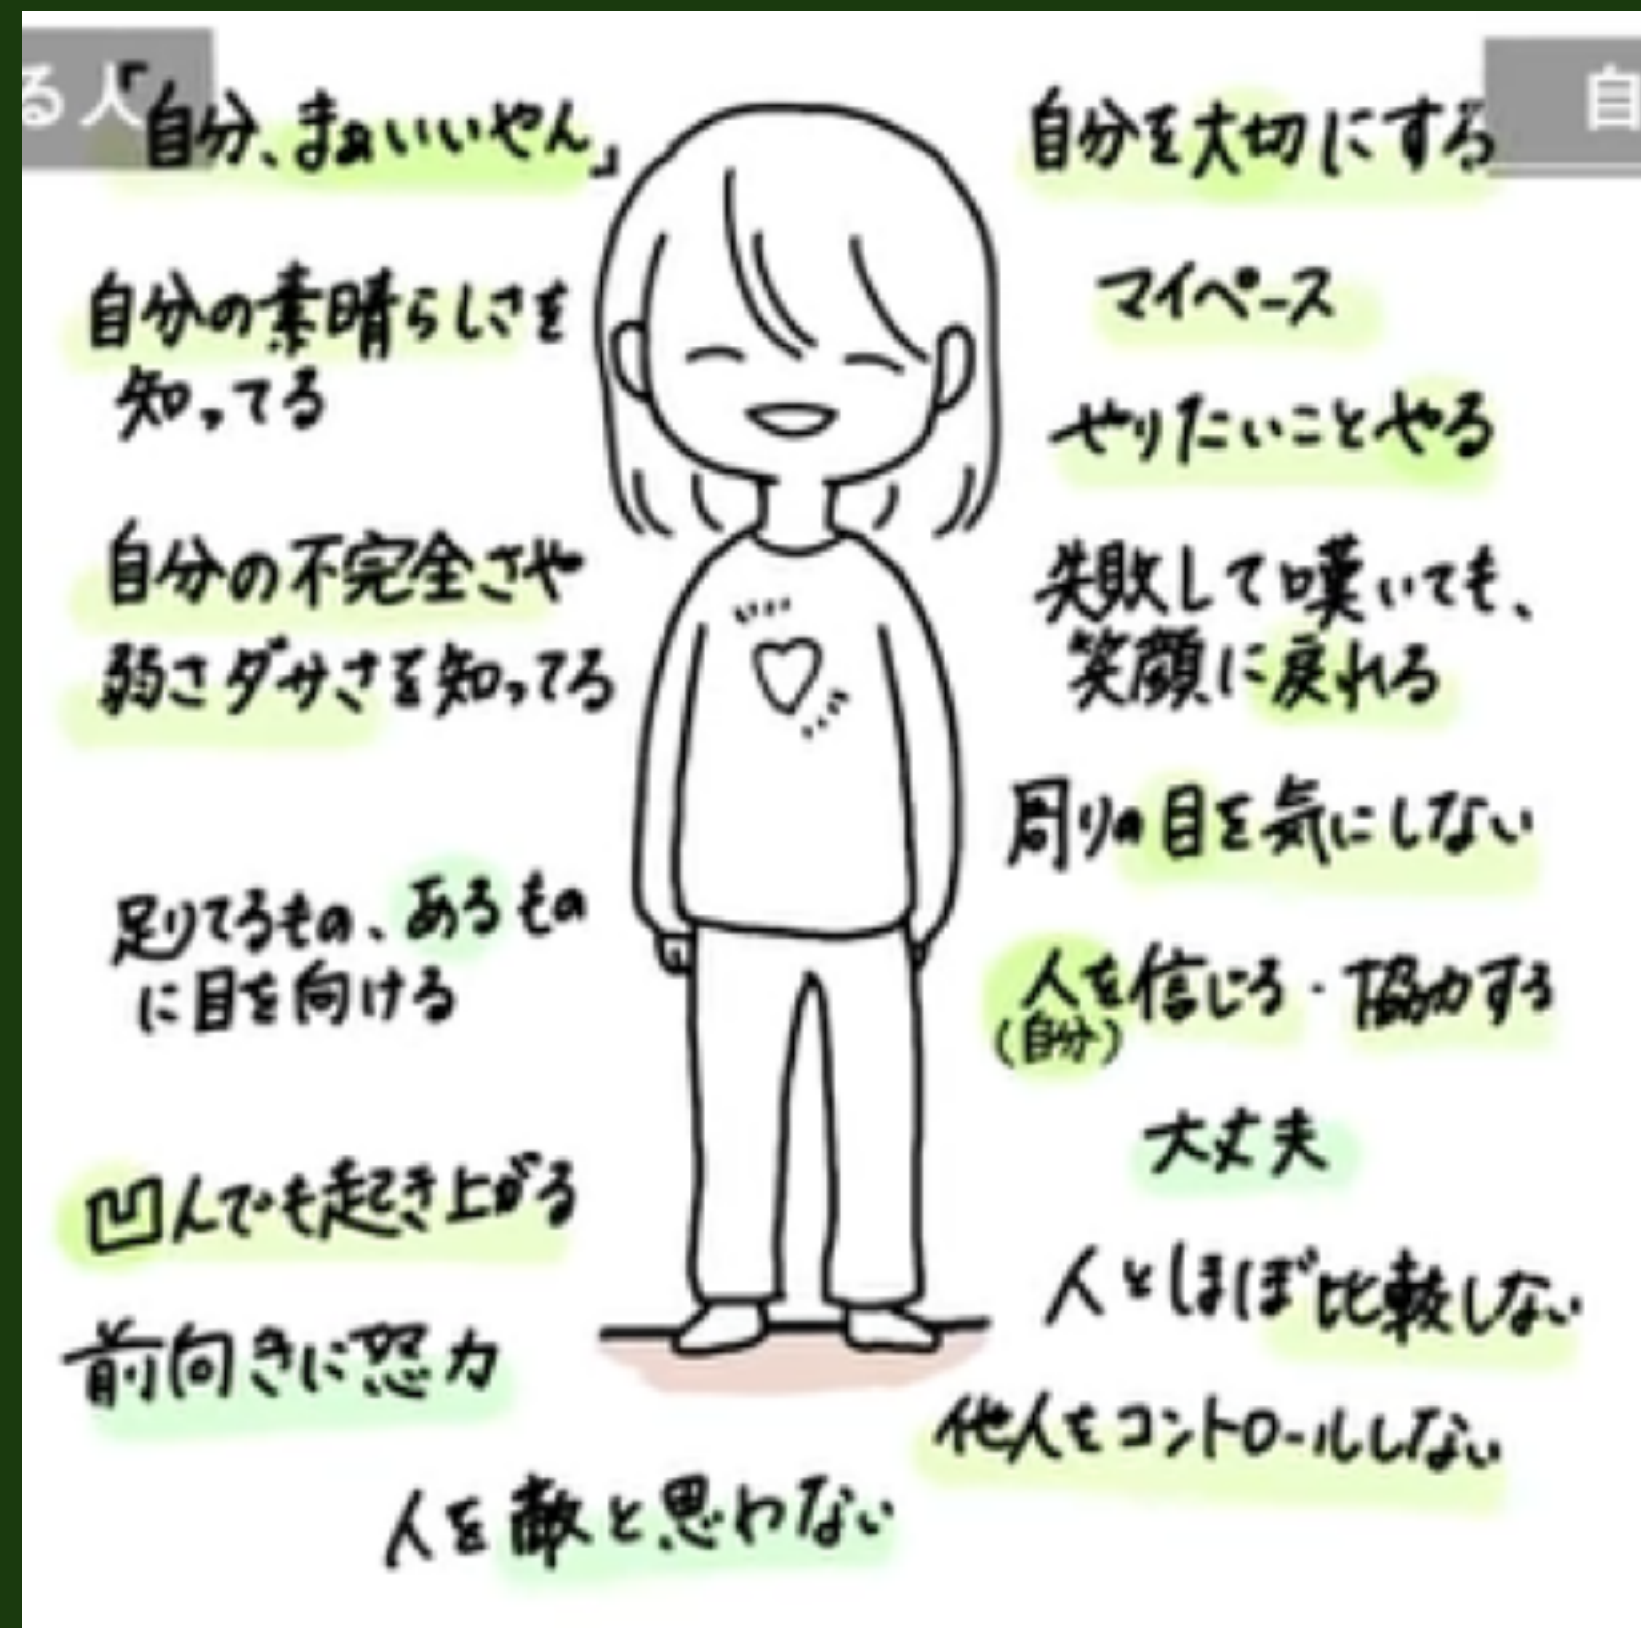 る人
「自分、まぁいいやん」
自分の素晴らしさを
知ってる
自分の不完全さや
弱さダサさを知ってる
足りてるもの、あるもの
に目を向ける
凹んでも起き上がる
前向きに努力
人を敵と思わない
自
自分を大切にする
マイペース
やりたいことやる
失敗して嘆いても、
笑顔に戻れる
周りの目を気にしない
人を信じる・協力する
(自分)
大丈夫
人とほぼ比較しない
他人をコントロールしない